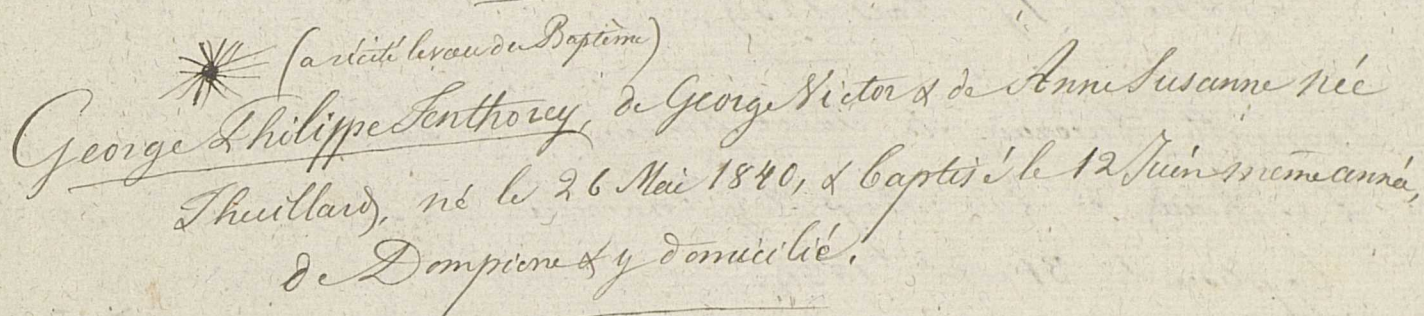 (a récité le vœu du Baptême)
George Philippe Jenthorey, de George Victor & de Anne Susanne née
Thuillard, né le 26 Mai 1840, & baptisé le 12 Juin même année,
de Dompierre & y domicilié.